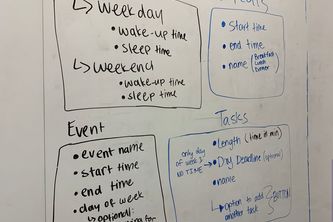 ↳ Weekday
• wake-up time
• sleep time
↳ Weekend
• wake-up time
• sleep time
• start time
• end time
• name (Breakfast
Lunch
Dinner
Event
• event name
• start time
• end time
• day of week
↳ optional:
Tasks
• Length (time in min)
only day
of week
NO TIME
• Day Deadline (optional)
• name
↳ option to add
another task
BUTTON